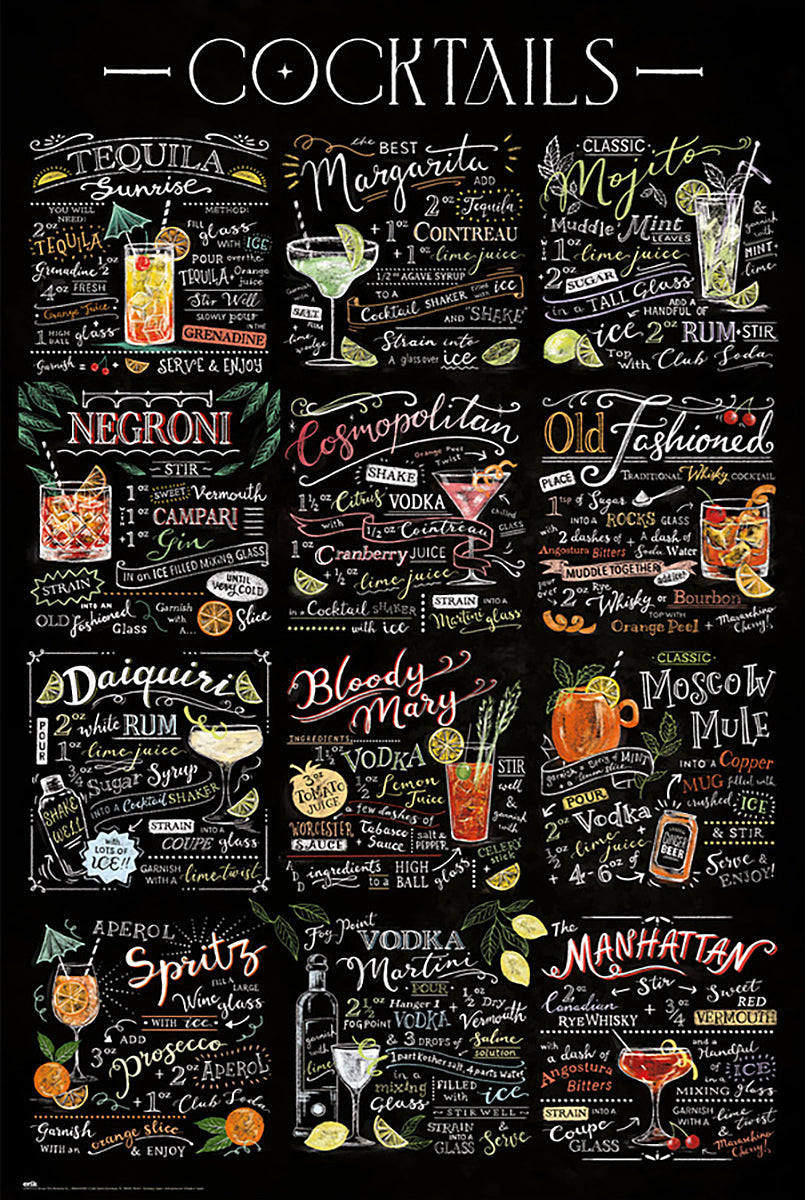 COCKTAILS
TEQUILA
Sunrise
YOU WILL
NEED:
2oz
TEQUILA
Grenadine 1/2oz
4oz FRESH
Orange Juice
1 HIGH BALL glass
METHOD:
FILL glass
WITH ICE
POUR over the
TEQUILA + Orange juice
Stir Well
SLOWLY pour
IN THE
GRENADINE
Garnish = + SERVE & ENJOY
the BEST
Margarita
ADD
2oz Tequila
+ 1oz COINTREAU
+ 1oz lime juice
1/2 oz AGAVE SYRUP
TO A
Cocktail SHAKER filled with ice
AND "SHAKE"
Garnish
with a
SALT
RIM
+ lime
wedge
Strain into
A glass over ice
CLASSIC
Mojito
Muddle Mint
LEAVES
1oz lime juice
+ 2oz SUGAR
in a TALL Glass
ADD A
HANDFUL OF
ice 2oz RUM • STIR
Top With Club Soda
&
garnish
with
MINT
+ lime
NEGRONI
STIR
1oz SWEET Vermouth
1oz CAMPARI
+ 1oz Gin
IN an ICE FILLED MIXING GLASS
STRAIN
UNTIL
very COLD
INTO AN
OLD fashioned
Glass
Garnish
with
A...
Slice
Cosmopolitan
Orange Peel
Twist
SHAKE
1 1/2oz Citrus VODKA
with 1/2 oz Cointreau
chilled
GLASS
1oz Cranberry JUICE
+ 1/2oz lime juice
in a Cocktail SHAKER
with ice
STRAIN INTO A
Martini glass
Old Fashioned
PLACE
TRADITIONAL Whisky COCKTAIL
1 tsp of Sugar
INTO A ROCKS GLASS
with 2 dashes of + A dash of
Angostura Bitters Soda Water
MUDDLE TOGETHER
add ice!
pour over 2oz Rye Whisky or Bourbon
TOP WITH
Orange Peel + Maraschino Cherry!
Daiquiri
POUR
2oz white RUM
1oz lime juice
3/4oz Sugar Syrup
INTO A Cocktail SHAKER
SHAKE
WELL
with
LOTS OF
ICE!!
STRAIN INTO A
COUPE glass
GARNISH
WITH A lime twist
Bloody
Mary
INGREDIENTS:
1 1/2oz VODKA
3oz
TOMATO
JUICE
1/2oz Lemon
Juice
a few dashes of
WORCESTER
SAUCE
Tabasco
+ Sauce
salt &
PEPPER
STIR
well
&
garnish
with
CELERY
STICK
+
ADD ingredients
to a
HIGH
BALL glass
CLASSIC
MOSCOW
MULE
garnish = sprig of MINT
+ a lemon slice
INTO A Copper
MUG filled with
crushed ICE
POUR
2oz Vodka
1/2oz lime juice +
+ 4-6oz of
GINGER
BEER
& STIR
Serve &
ENJOY!
APEROL
Spritz
FILL A LARGE
Wine glass
WITH ice
ADD
3oz Prosecco
+ 2oz APEROL
+ 1oz Club Soda
Garnish
WITH AN orange slice
& ENJOY
Fog Point
VODKA
Martini
POUR
2 1/2oz Hanger 1
FOG POINT VODKA
+ 1/2oz Dry
Vermouth
& 3 DROPS of Saline
solution
1 part kosher salt, 4 parts water
garnish
with
lime
in a
mixing
Glass
FILLED
with ice
STIR WELL
STRAIN
INTO A
GLASS
& Serve
The
MANHATTAN
Stir
2oz
Canadian
RYE WHISKY
+ 3/4oz
Sweet
RED
VERMOUTH
with a dash of
Angostura
Bitters
and a
Handful
of ICE
in a
MIXING GLASS
STRAIN INTO A
Coupe
GLASS
GARNISH
WITH a lime twist
& Maraschino
Cherry!
erik